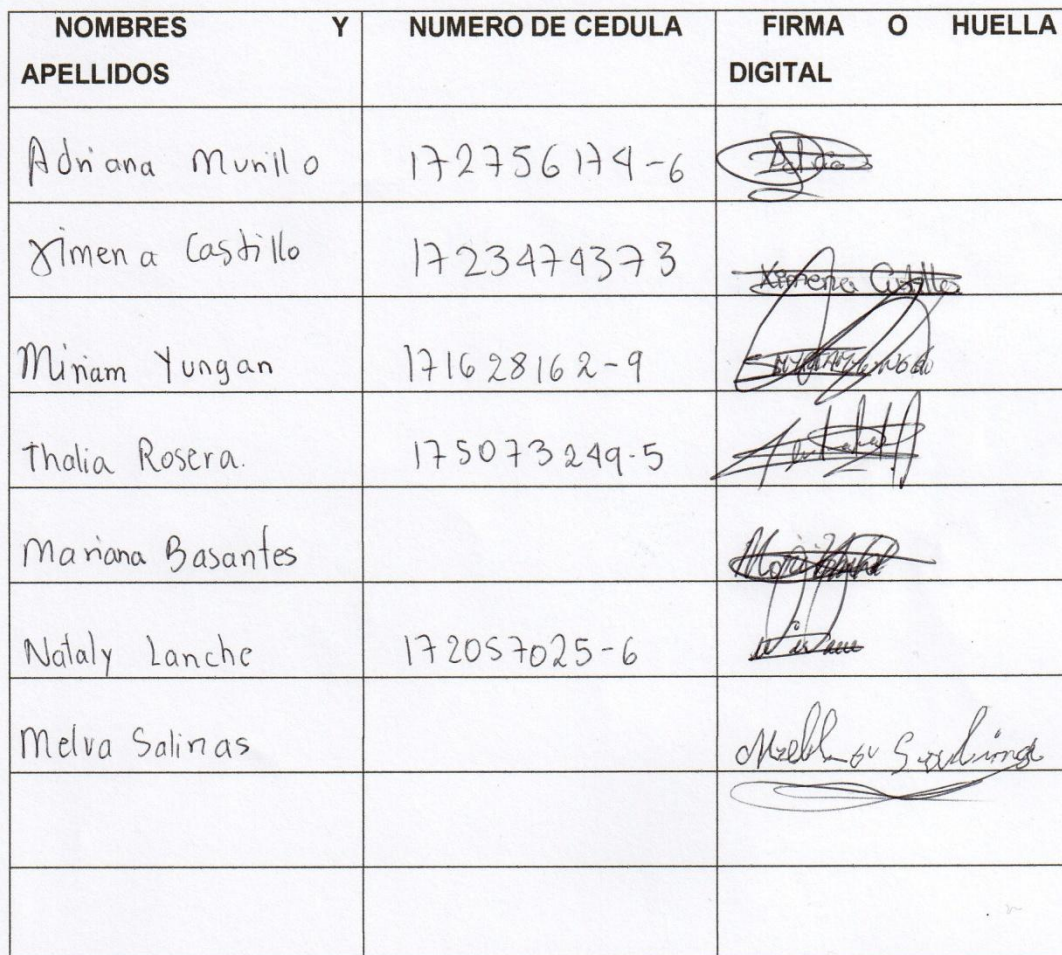 NOMBRES Y APELLIDOS NUMERO DE CEDULA FIRMA O HUELLA DIGITAL
Adriana Murillo 172756174-6
Ximena Castillo 1723474373 Ximena Castillo
Miriam Yungan 171628162-9
Thalia Rosera. 175073249-5
Mariana Basantes
Nataly Lanche 172057025-6
Melva Salinas